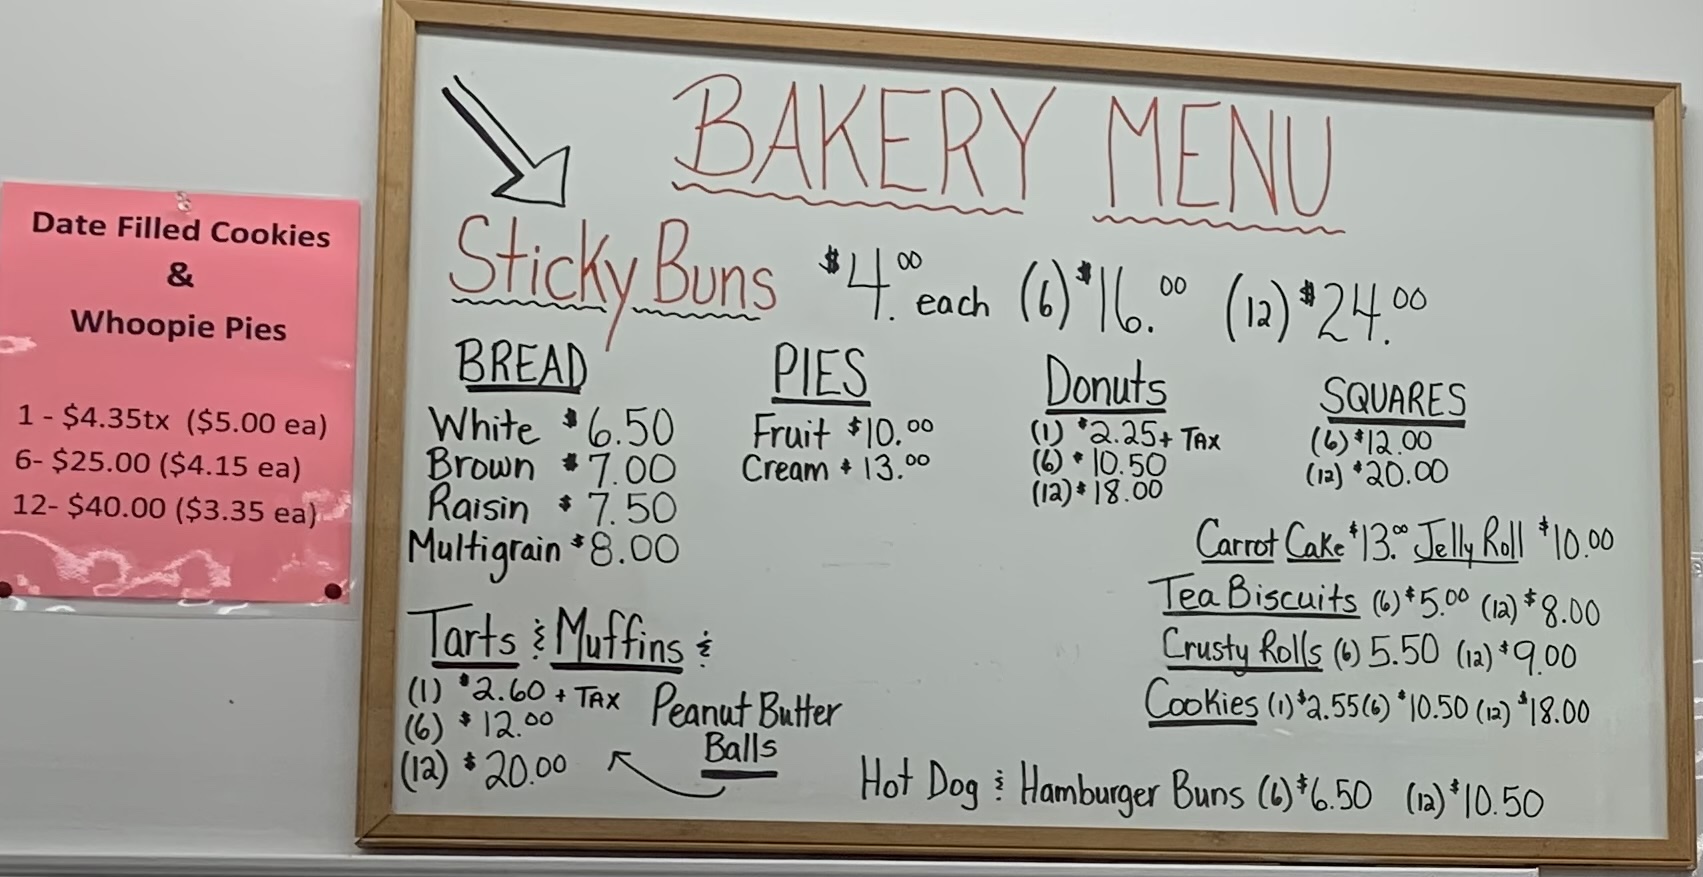 Date Filled Cookies
&
Whoopie Pies
1 - $4.35tx ($5.00 ea)
6- $25.00 ($4.15 ea)
12- $40.00 ($3.35 ea)
BAKERY MENU
Sticky Buns $4.00 each (6) $16.00 (12) $24.00
BREAD
White $6.50
Brown $7.00
Raisin $7.50
Multigrain $8.00
PIES
Fruit $10.00
Cream $13.00
Donuts
(1) $2.25 + TAX
(6) $10.50
(12) $18.00
SQUARES
(6) $12.00
(12) $20.00
Carrot Cake $13.00 Jelly Roll $10.00
Tea Biscuits (6) $5.00 (12) $8.00
Crusty Rolls (6) 5.50 (12) $9.00
Cookies (1) $2.55 (6) $10.50 (12) $18.00
Tarts & Muffins &
Peanut Butter
Balls
(1) $2.60 + TAX
(6) $12.00
(12) $20.00
Hot Dog & Hamburger Buns (6) $6.50 (12) $10.50